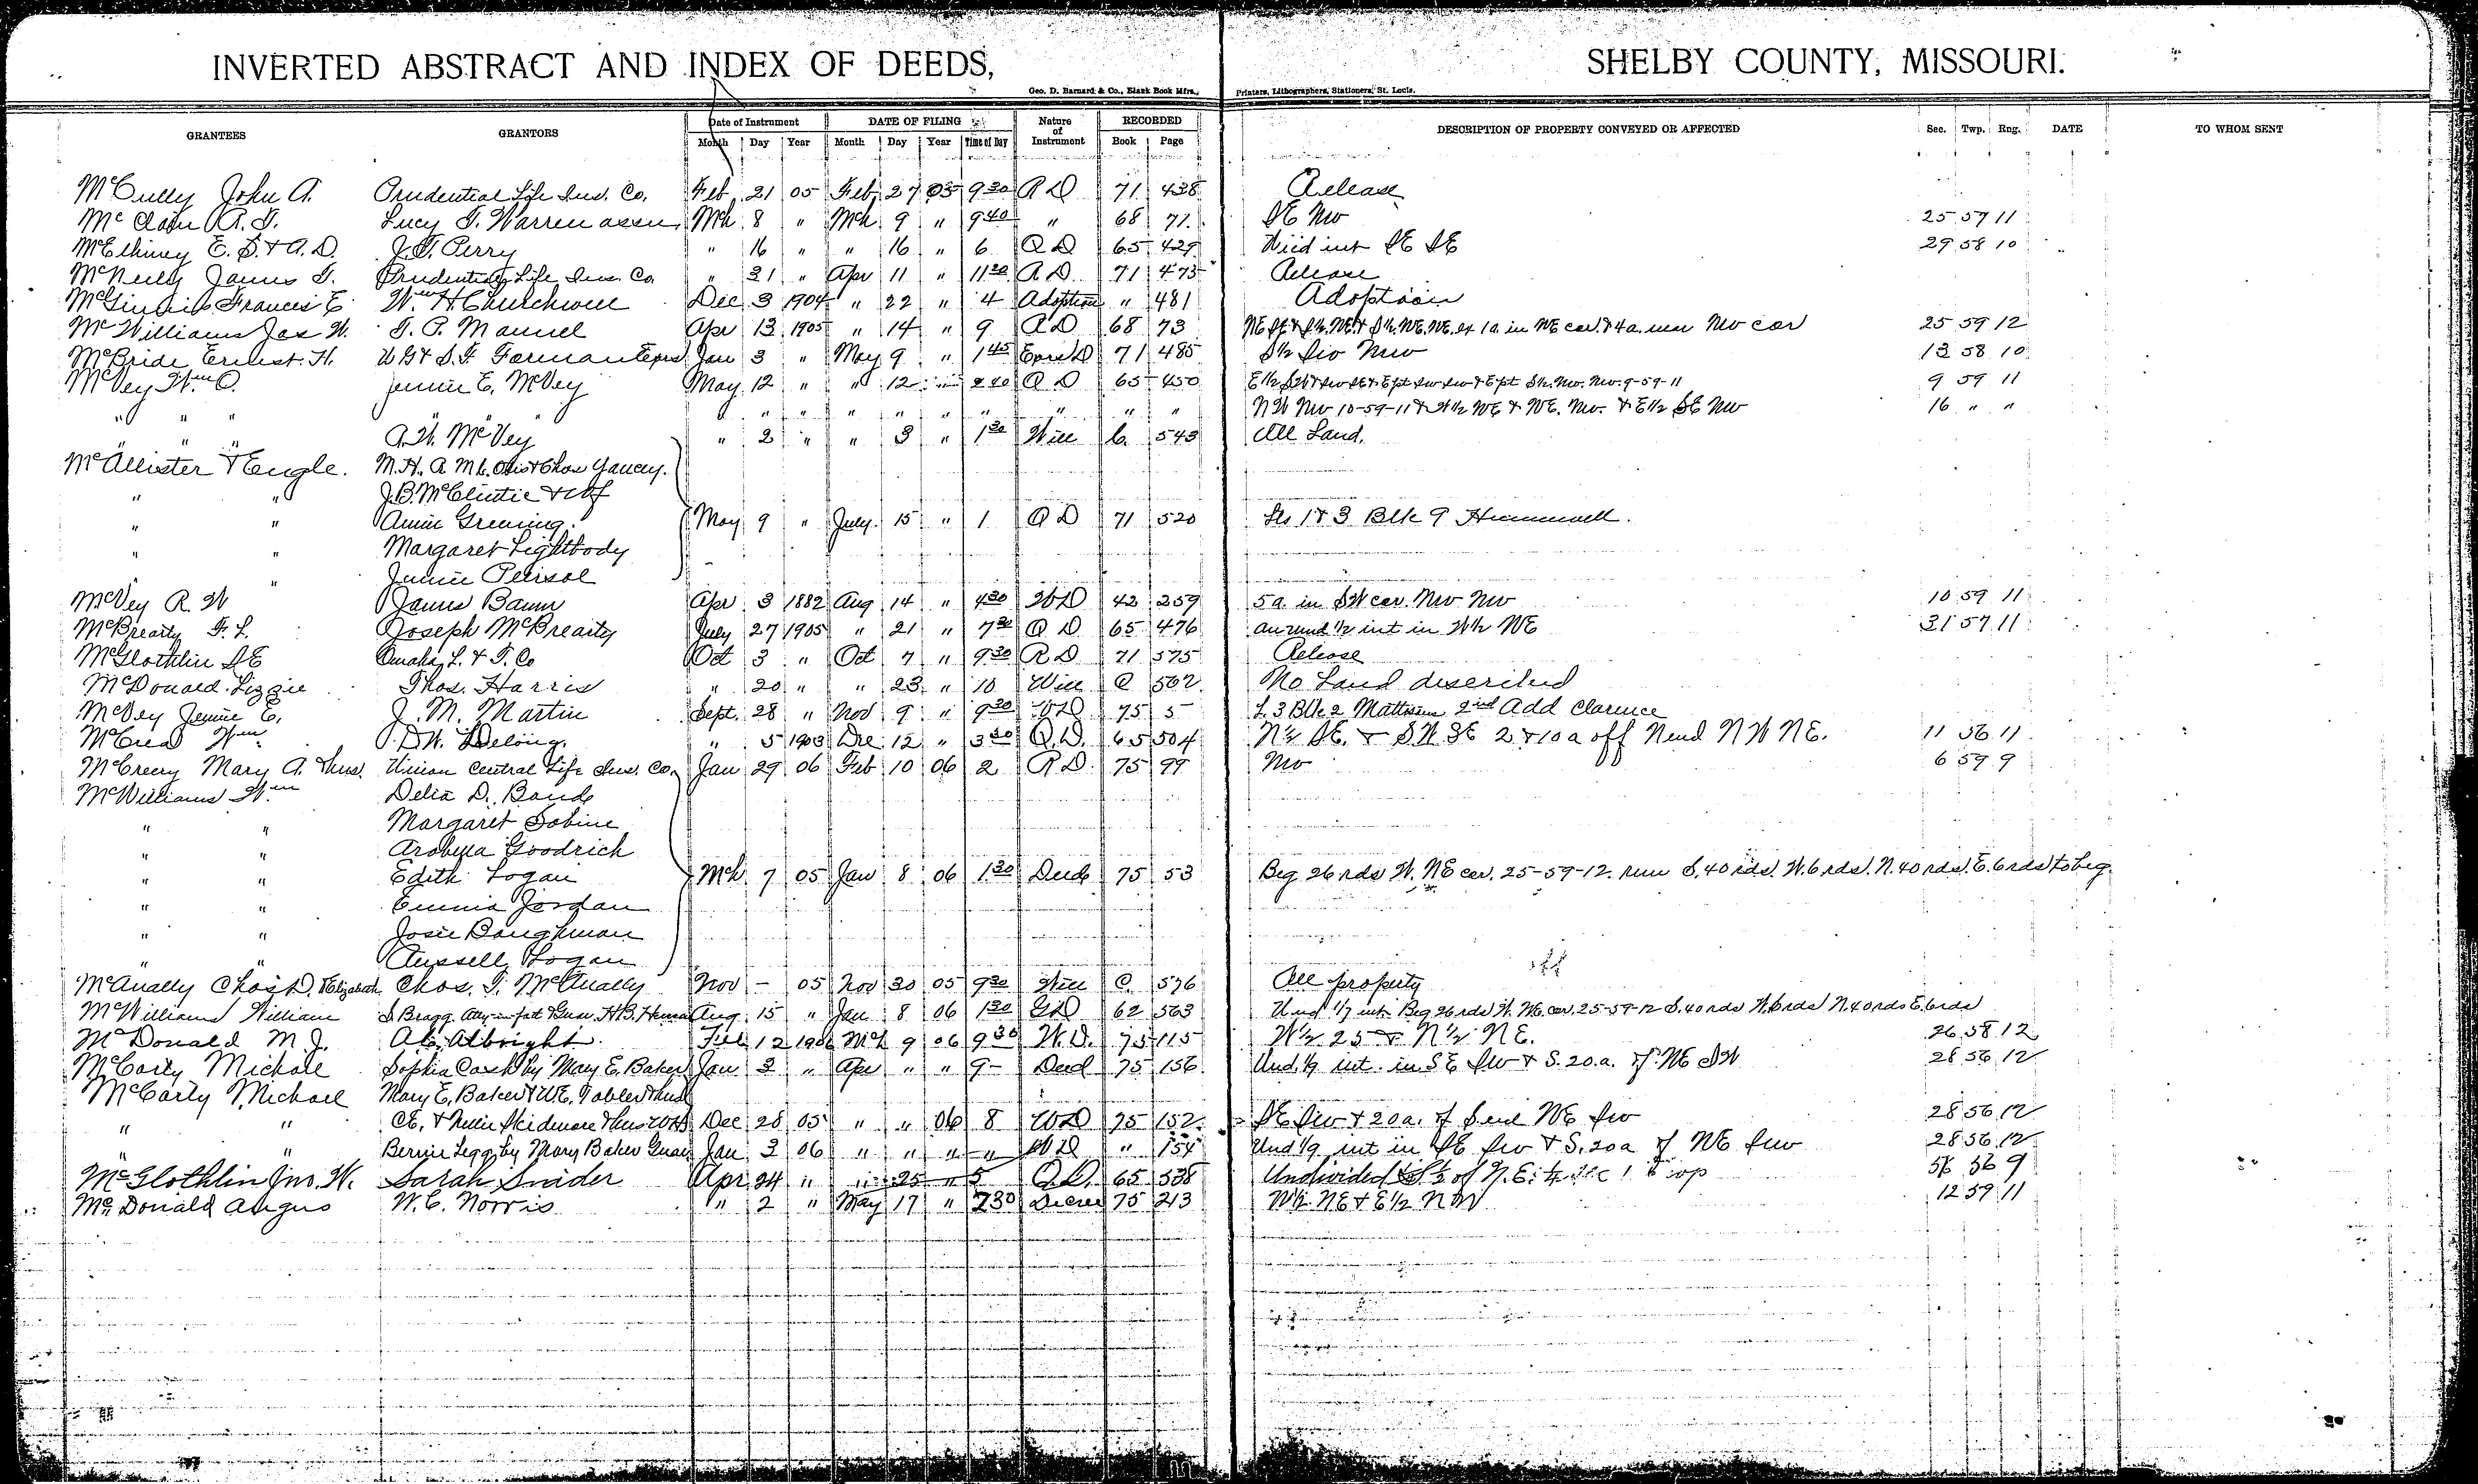 INVERTED ABSTRACT AND INDEX OF DEEDS, SHELBY COUNTY, MISSOURI.
Geo. D. Barnard & Co., Blank Book Mfrs., Printers, Lithographers, Stationers, St. Louis.
GRANTEES GRANTORS Date of Instrument DATE OF FILING Nature of Instrument RECORDED DESCRIPTION OF PROPERTY CONVEYED OR AFFECTED Sec. Twp. Rng. DATE TO WHOM SENT
Month Day Year Month Day Year Time of Day Book Page
McCully John A. Prudential Life Ins. Co. Feb 21 05 Feb 27 05 9 30 R D 71 438 Release
McClain R. T. Lucy T. Warren assn Mch 8 " Mch 9 " 9 40 " 68 71 SE NW 25 57 11
McElhiney E. S. & A. D. J. T. Perry " 16 " " 16 " 6 Q D 65 429 int SE SE 29 58 10
McNeily James T. Prudential Life Ins. Co. " 31 " Apr 11 " 11 20 R D 71 473 Release
McGinnis Frances E Wm H Churchwell Dec 3 1904 " 22 " 4 Adoption " 481 Adoption
McWilliams Jas W. T. P. Manuel Apr 13 1905 " 14 " 9 R D 68 73 ex 1a. in NE cor. & 4a. near NW cor 25 59 12
McBride Ernest H. W G & S. F. Forman Exrs Jan 3 " May 9 " 1 45 Exrs D 71 485 S½ Sw Nw 13 58 10
McVey Wm O. Jennie E. McVey May 12 " " 12 " 2 20 Q D 65 450 E½ SW & Sw SE & E pt Sw Sw & E pt S½ Nw. Nw. 9-59-11 9 59 11
" " " " " " " " " " " " " NW Nw 10-59-11 & W½ NE & NE. Nw. & E½ SE Nw 16 " "
" " " A. W. McVey " 2 " " 3 " 1 30 Will 6 543 All Land.
McAllister & Engle. M. H. A M L. Otis & Chas Yancey.
" " J. B. McClintic & Wf
" " Annie Greening May 9 " July 15 " 1 Q D 71 520 Lts 1 & 3 Blk 9 Hunnewell.
" " Margaret Lightbody
" " Jennie Peirsol
McVey R. W James Baum Apr 3 1882 Aug 14 " 4 30 W D 42 259 5 a. in SW cor. Nw Nw 10 59 11
McBrearty F. L. Joseph McBrearty July 27 1905 " 21 " 7 30 Q D 65 476 an und ½ int in W½ NE 31 57 11
McGlothlin S E Omaha L. & T. Co Oct 3 " Oct 7 " 9 30 R D 71 575 Release
McDonald Lizzie Thos. Harris " 20 " " 23 " 10 Will C 562 No Land described
McVey Jennie E. J. M. Martin Sept. 28 " Nov 9 " 9 30 W D 75 5 L 3 Blk 2 2nd Add Clarence
McCrea Wm D. W. DeLong. " 5 1903 Dec 12 " 3 30 Q. D. 65 504 N½ SE. & SW SE 2 & 10 a off N end NW NE. 11 56 11
McCreery Mary A. & hus. Union Central Life Ins. Co. Jan 29 06 Feb 10 06 2 R D 75 99 Nw 6 59 9
McWilliams Wm Delia D. Bande
" " Margaret Sobine
" " Arabella Goodrich
" " Edith Logan Mch 7 05 Jan 8 06 1 30 Deed 75 53 Beg 26 rds W. NE cor. 25-59-12. run S. 40 rds. W. 6 rds. N. 40 rds. E. 6 rds to beg.
" " Emma Jordan
" " Josie Baughman
" " Russell Logan
McAnally Chas D. & Elizabeth Chas. T. McAnally Nov - 05 Nov 30 05 9 30 Will C 576 All property
McWilliams William S Bragg. Atty in fact & Guar. H. B. Aug 15 " Jan 8 06 1 30 G D 62 563 Und 1/7 int. Beg 26 rds W. NE. cor. 25-59-12 S. 40 rds W. 6 rds N. 40 rds E. 6 rds
McDonald M J. A. C. Albright Feb 12 1906 Mch 9 06 9 30 W. D. 75 115 W½ 25 & N½ NE. 26 58 12
McCarty Michale Sophia Cash by Mary E. Baker Jan 3 " Apr " " 9 - Deed 75 156 Und. 1/9 int. in SE Sw & S. 20. a. of NE SW 28 56 12
McCarty Michael Mary E. Baker & W E. Tabler & hus
" " C E. & Nellie Skidmore & hus Dec 28 05 " " 06 8 W D 75 152 SE Sw & 20 a. of S end NE Sw 28 56 12
" " Bernie Legg by Mary Baker Guar Jan 3 06 " " " " W D " 154 Und 1/9 int in SE Sw & S. 20 a of NE Sw 28 56 12
McGlothlin Jno. W. Sarah Snider Apr 24 " " 25 " 5 Q D. 65 538 Undivided of N. E. ¼ sec 1 56 9
McDonald Angus W. C. Norris " 2 " May 17 " 7 30 Decree 75 213 W½ NE & E½ NW 12 59 11